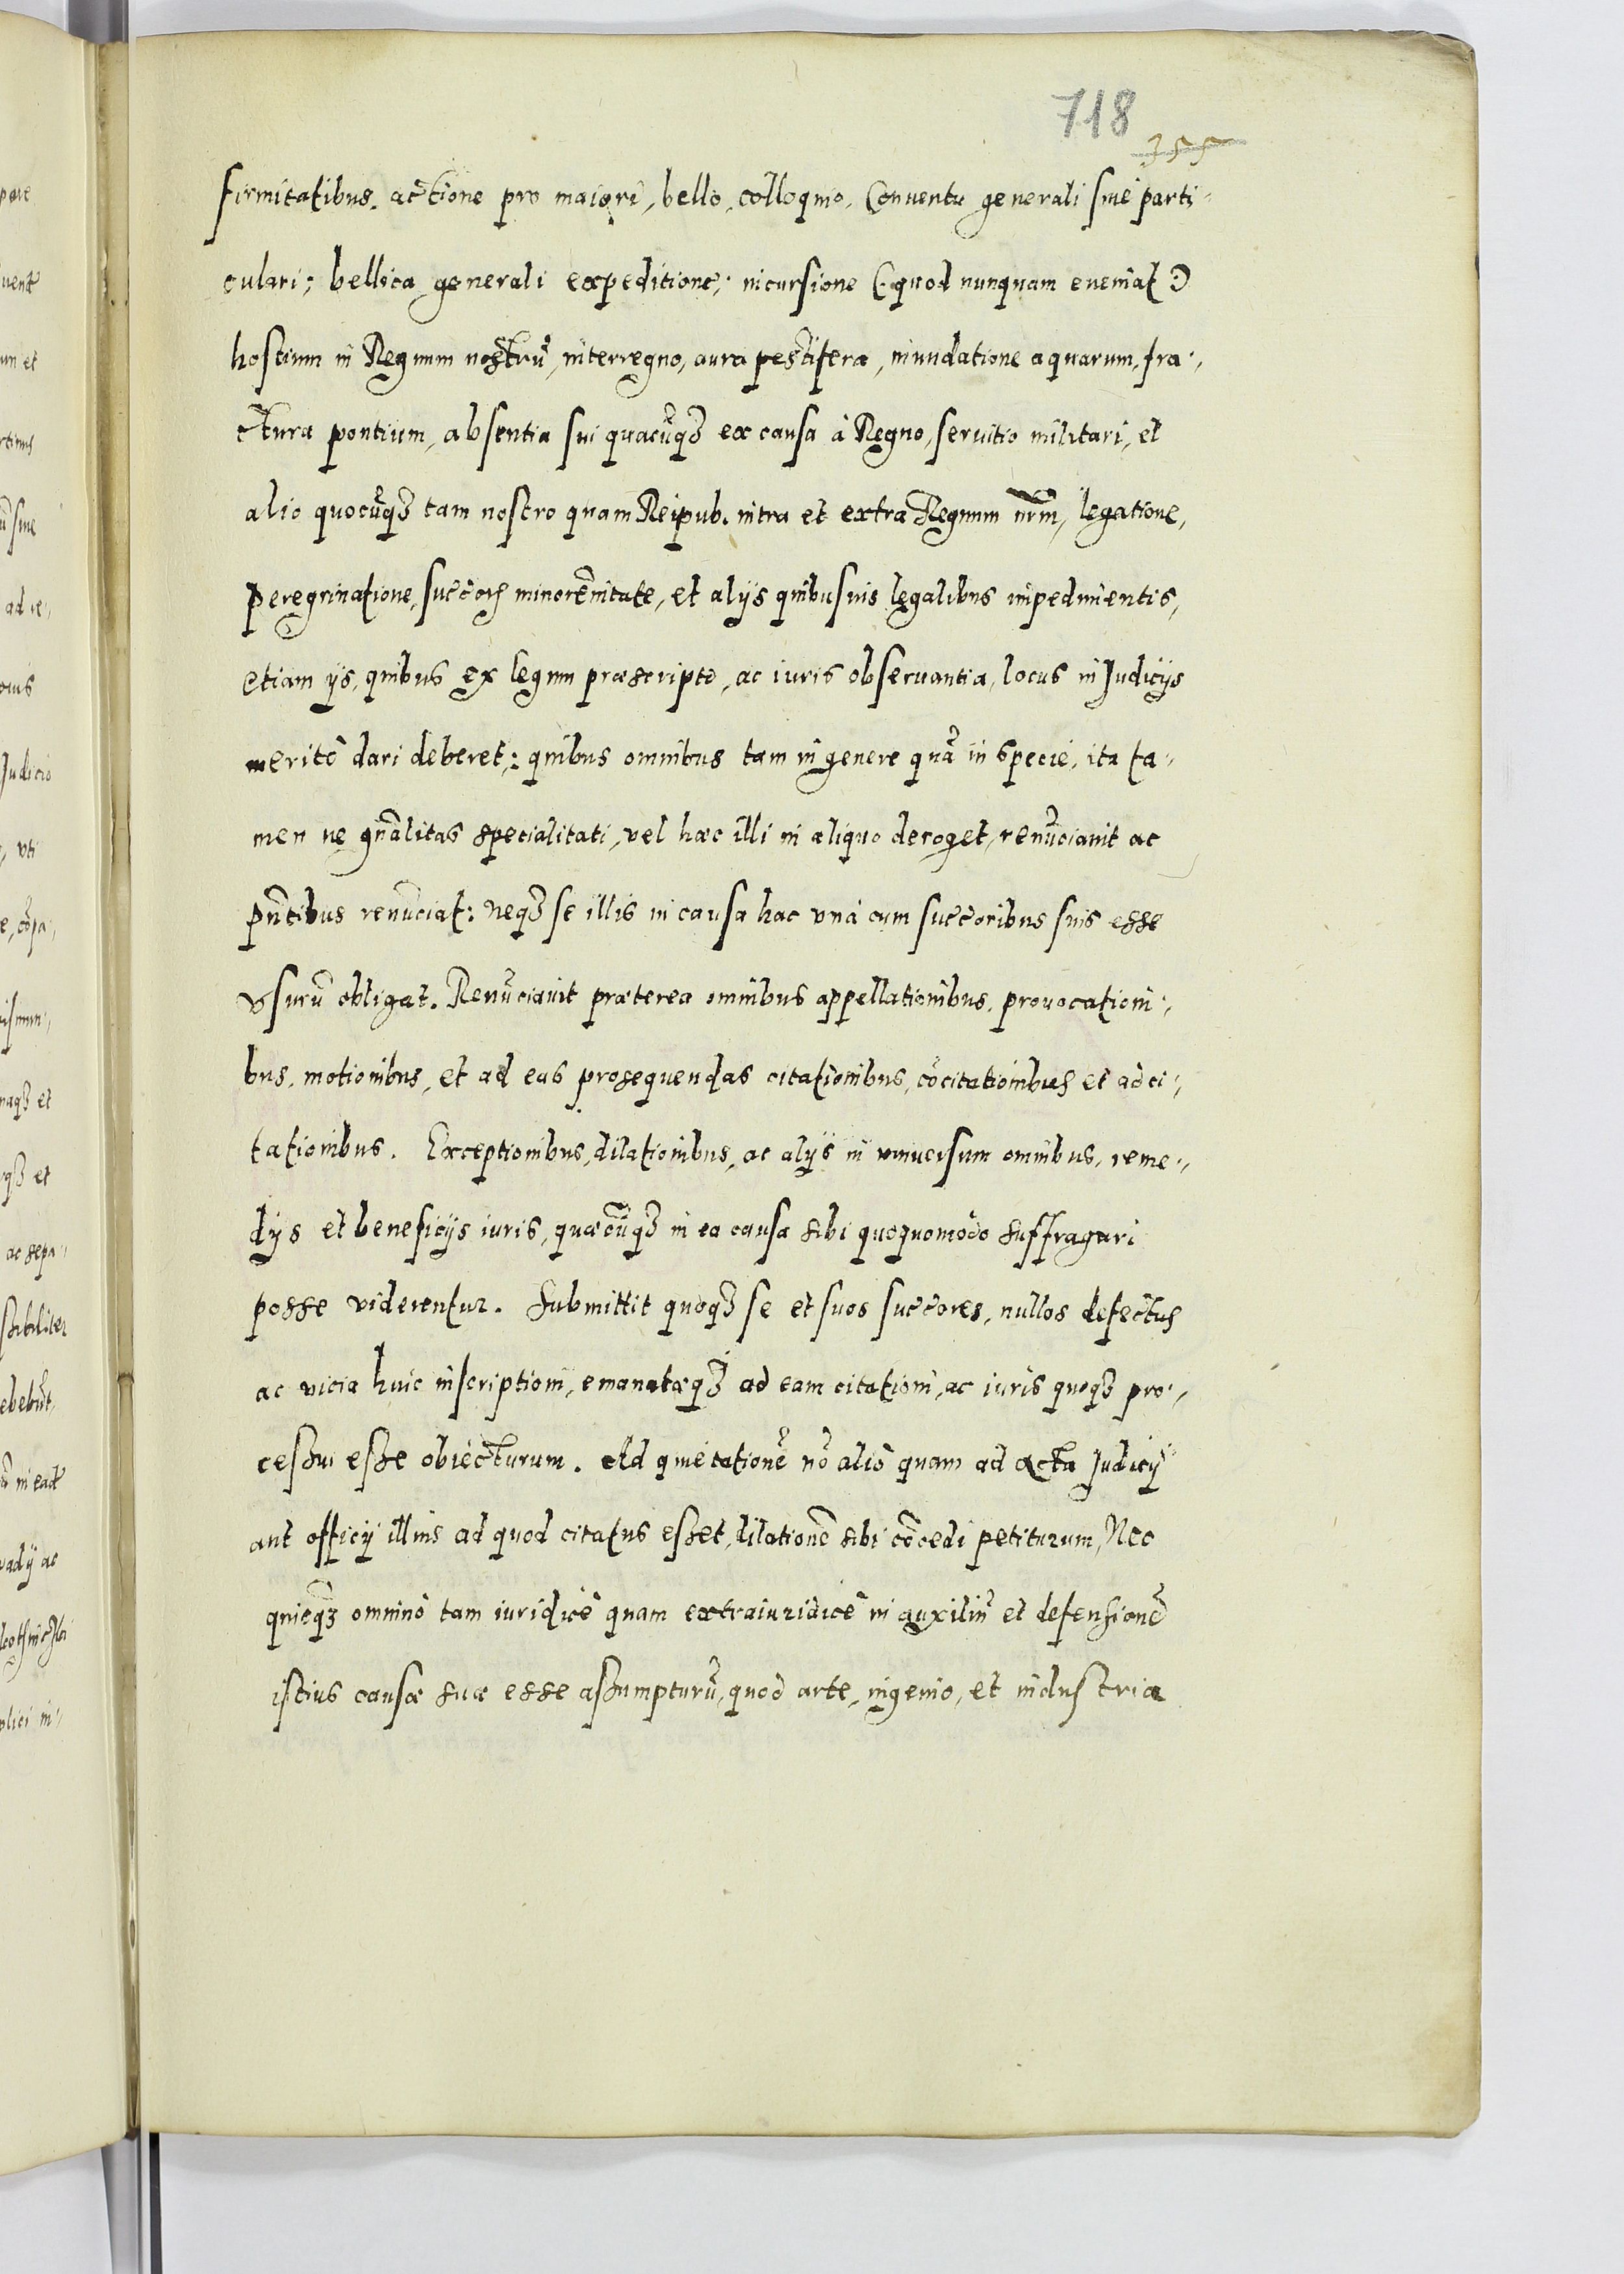 718
355
firmitatibus, actione pro maiori, bello, colloquio, Conuentu generali siue parti-
culari; bellica generali expeditione; incursione (: quod nunquam eueniat :)
hostium in Regnum nostrũ, interregno, aura pestifera, inundatione aquarum, fra-
ctura pontium, absentia sui quacũqȝ ex causa à Regno, seruitio militari, et
alio quocũqȝ tam nostro quam Reipub. intra et extra Regnum nr̃m, legatione,
peregrinatione, succõrũ minorẽnitate, et alijs quibusuis legalibus impedimentis,
etiam ijs, quibus ex legum præscripto, ac iuris obseruantia, locus in Judicijs
meritò dari deberet; quibus omnibus tam in genere quã in specie, ita ta-
men ne gñalitas specialitati, vel hæc illi in aliquo deroget, renũciauit ac
pñtibus renũciat: neqȝ se illis in causa hac vnà cum succõribus suis esse
vsurũ obligat. Renũciauit præterea omnibus appellationibus, prouocationi-
bus, motionibus, et ad eas prosequendas citationibus, cõcitationibus et adci-
tationibus. Exceptionibus, dilationibus, ac alijs in vniuersum omnibus, reme-
dijs et beneficijs iuris, quæcũqȝ in ea causa sibi quoquomodo suffragari
posse viderentur. Submittit quoqȝ se et suos succõres, nullos defectus
ac vicia huic inscriptioni, emanatæqȝ ad eam citationi, ac iuris quoqȝ pro-
cessui esse obiecturum. Ad quietationẽ nõ aliò quam ad acta Judicij
aut officij illius ad quod citatus esset, dilationẽ sibi cõcedi petiturum, Nec
quicqȝ omninò tam iuridicè quam extraiuridicè in auxiliũ et defensionẽ
istius causæ suæ esse assumpturũ, quod arte, ingenio, et industria